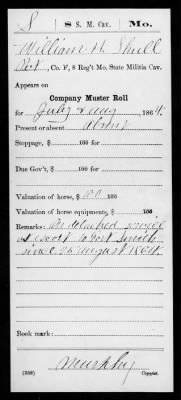 S 8 S. M. Cav. Mo.
William H. Shull
Pvt., Co. F, 8 Reg't Mo. State Militia Cav.
Appears on
Company Muster Roll
for July & Aug, 1864.
Present or absent Absent
Stoppage, $ 100 for
Due Gov't, $ 100
Valuation of horse, $ 100
Valuation of horse equipments, $ 100
Remarks: On detached service
as escort to Fort Smith
since 26 August 1864.
Book mark:
Murphy
(358) Copyist.